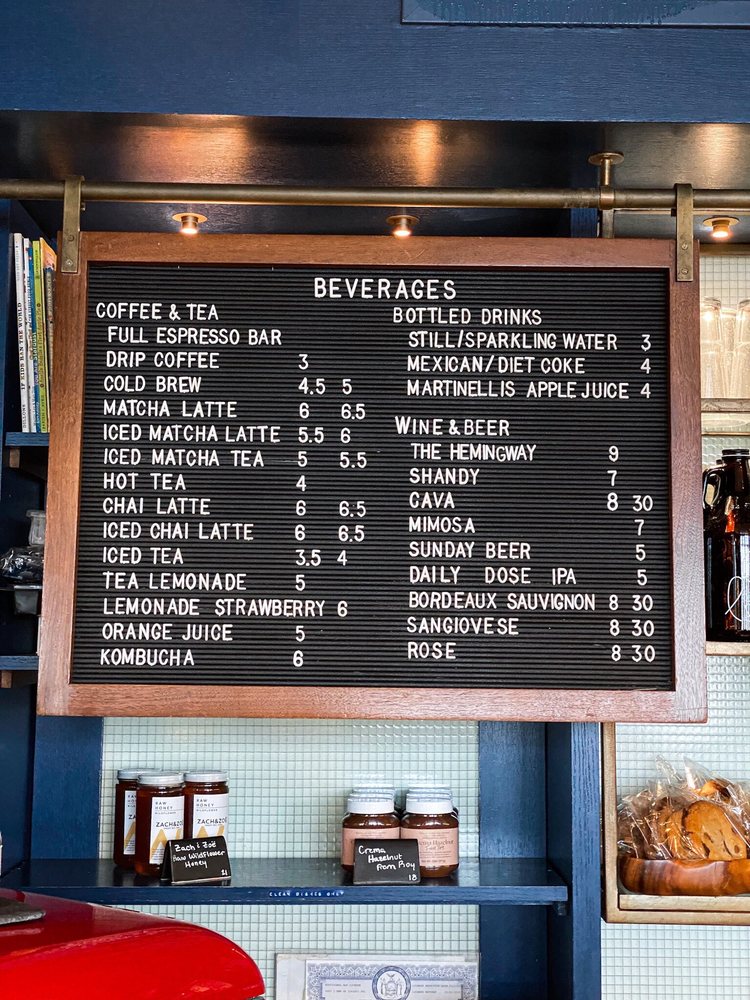 BEVERAGES
COFFEE & TEA
FULL ESPRESSO BAR
DRIP COFFEE 3
COLD BREW 4.5 5
MATCHA LATTE 6 6.5
ICED MATCHA LATTE 5.5 6
ICED MATCHA TEA 5 5.5
HOT TEA 4
CHAI LATTE 6 6.5
ICED CHAI LATTE 6 6.5
ICED TEA 3.5 4
TEA LEMONADE 5
LEMONADE STRAWBERRY 6
ORANGE JUICE 5
KOMBUCHA 6
BOTTLED DRINKS
STILL/SPARKLING WATER 3
MEXICAN/DIET COKE 4
MARTINELLIS APPLE JUICE 4
WINE & BEER
THE HEMINGWAY 9
SHANDY 7
CAVA 8 30
MIMOSA 7
SUNDAY BEER 5
DAILY DOSE IPA 5
BORDEAUX SAUVIGNON 8 30
SANGIOVESE 8 30
ROSE 8 30
IF KIDS RAN THE WORLD
RAW
HONEY
WILDFLOWER
ZACH&ZOË
RAW
HONEY
WILDFLOWER
ZACH&ZOË
Zach & Zoë
Raw Wildflower
Honey
21
Crema
Hazelnut
from Roy
18
CLEAN DISHES ONLY